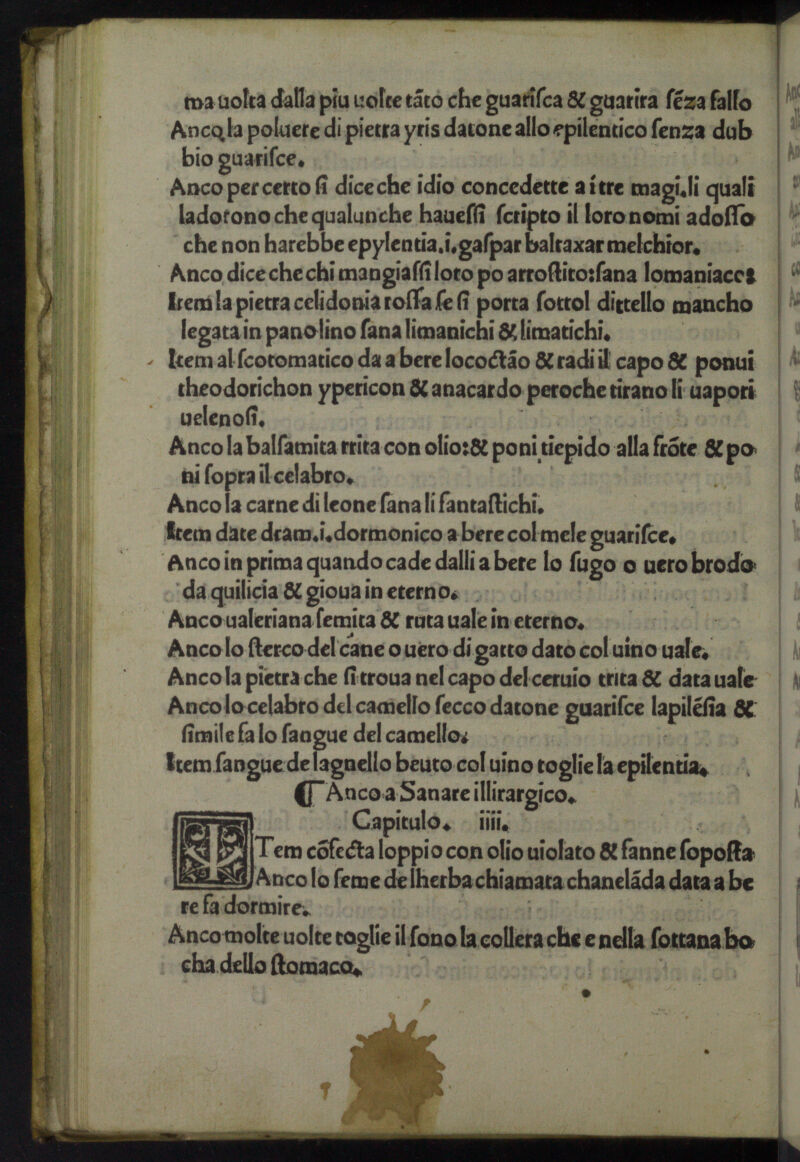 ma uolta dalla piu uolte tãto che guarisca & guarira sẽza fallo
Anco la poluere di pietra yris datone allo epilentico senza dub
bio guarisce.
Anco per certo si dice che idio concedette ai tre magi.li quali
ladorono che qualunche hauessi scripto il loro nomi adosso
che non harebbe epylentia.i.gaspar baltaxar melchior.
Anco dice che chi mangiassi loro po arrostito:sana lomaniaco:
Item la pietra celidonia rossa se si porta sottol dittello mancho
legata in pano lino sana limanichi & limatichi.
Item al scotomatico da a bere lococtão & radi il capo & ponui
theodorichon ypericon & anacardo peroche tirano li uapori
uelenosi.
Anco la balsamita trita con olio:& poni tiepido alla frõte & po
ni sopra il celabro.
Anco la carne di leone sana li fantastichi.
Item date dram.i.dormonico a bere col mele guarisce.
Anco in prima quando cade dalli a bere lo sugo o uero brodo
da quilicia & gioua in eterno.
Anco ualeriana semita & ruta uale in eterno.
Anco lo sterco del cane o uero di gatto dato col uino uale.
Anco la pietra che si troua nel capo del ceruio trita & data uale
Anco lo celabro del camello secco datone guarisce lapilẽsia &
simile fa lo sangue del camello.
Item sangue de lagnello beuto col uino toglie la epilentia.
¶ Anco a Sanare illirargico.
Capitulo. iiii.
Tem cõfecta loppio con olio uiolato & fanne soposta
Anco lo seme de lherba chiamata chanelãda data a be
re fa dormire.
Anco molte uolte toglie il sono la collera che e nella sottana bo
cha dello stomaco.